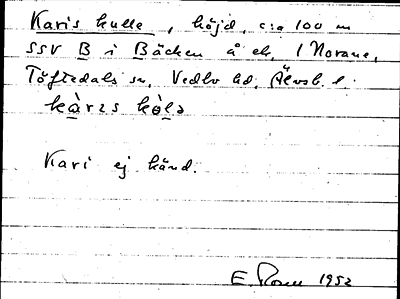 Karis kulle, höjd, c:a 100 m
SSV B i Bäcken å ek. 1 Norane,
Töftedals sn, Vedbo hd, Älvsb. l.
kàrɪs kòlə
Kari ej känd.
E. 1952